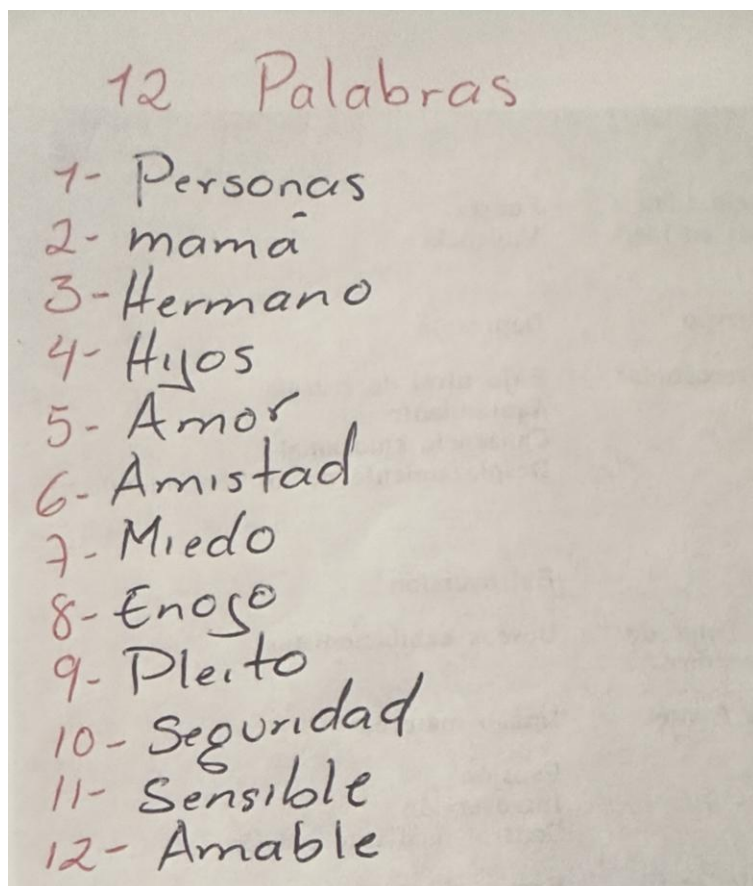 12 Palabras
1- Personas
2- mamá
3- Hermano
4- Hijos
5- Amor
6- Amistad
7- Miedo
8- Enojo
9- Pleito
10- Seguridad
11- Sensible
12- Amable